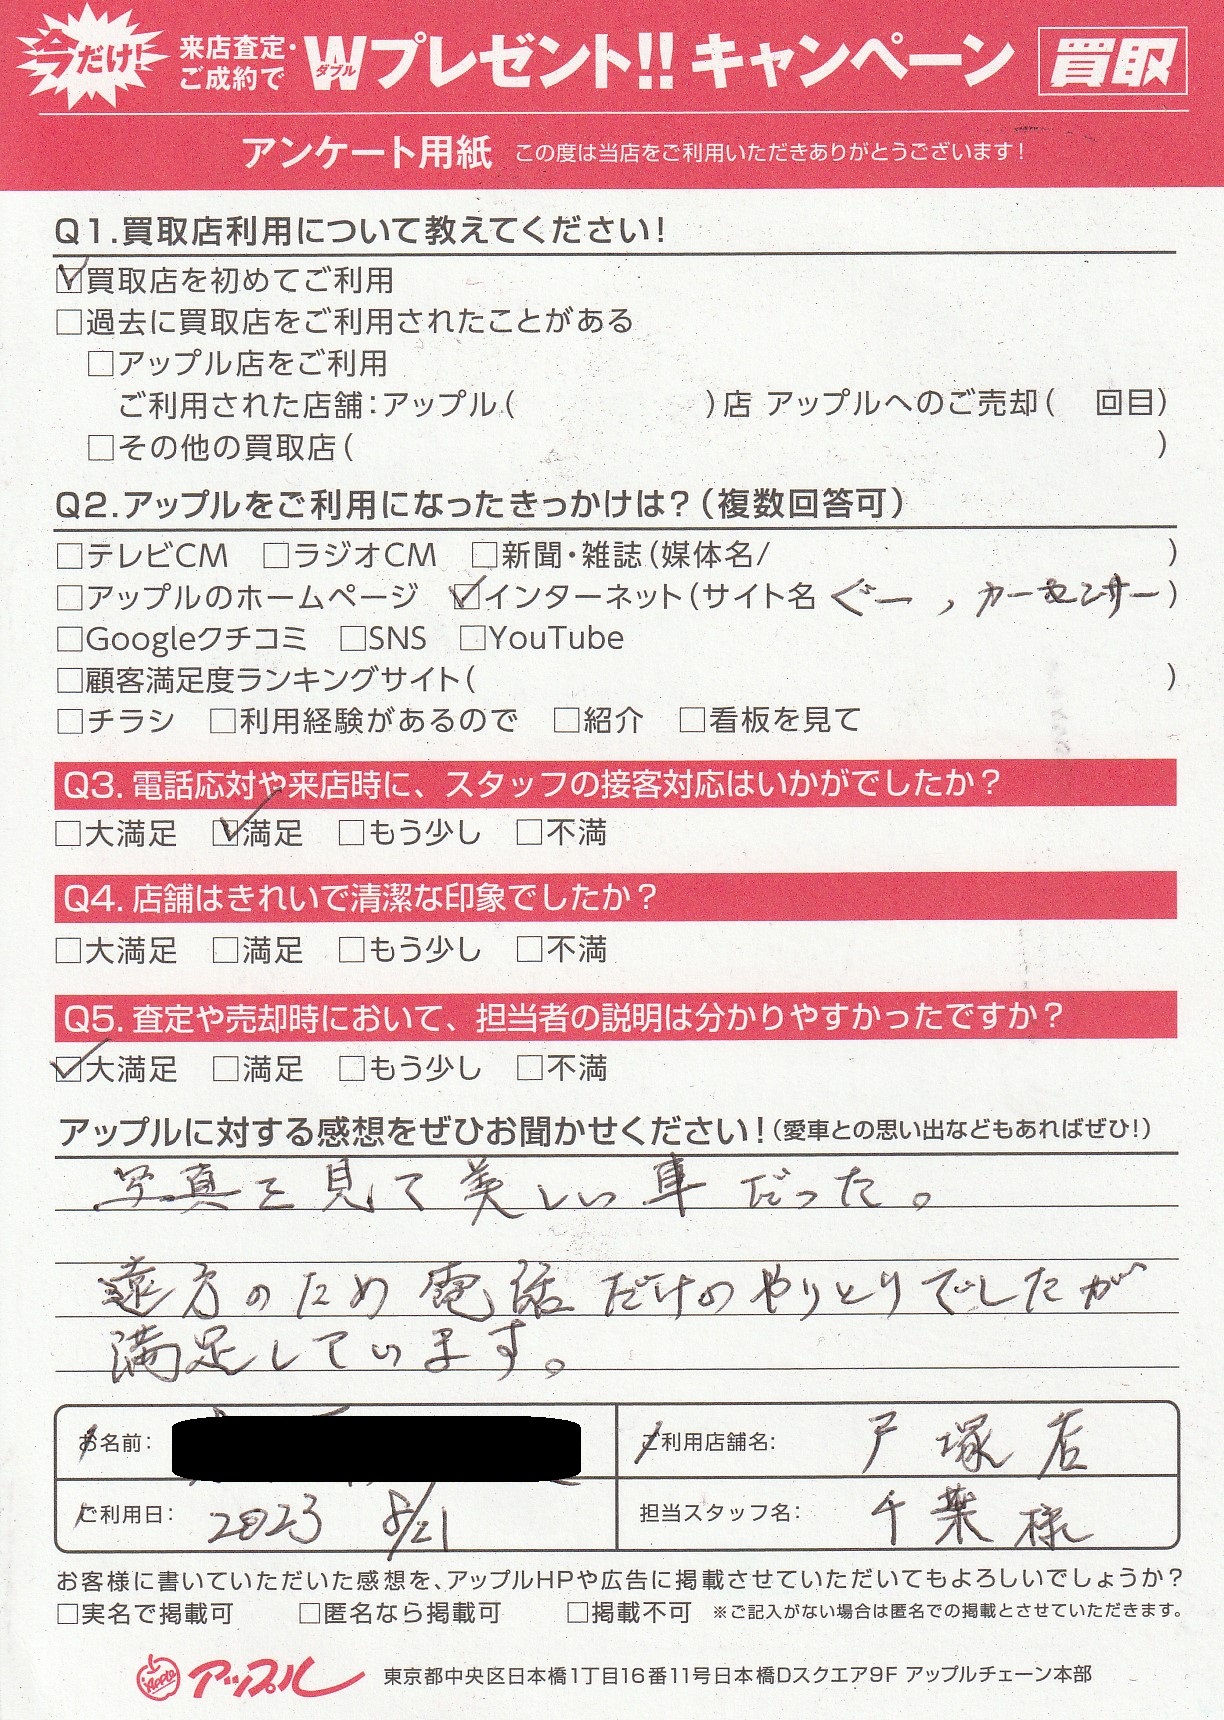 今だけ!
来店査定・
ご成約で
Wプレゼント!! キャンペーン 買取
ダブル
アンケート用紙 この度は当店をご利用いただきありがとうございます!
Q1.買取店利用について教えてください!
☑買取店を初めてご利用
□過去に買取店をご利用されたことがある
□アップル店をご利用
ご利用された店舗:アップル( )店 アップルへのご売却( 回目)
□その他の買取店( )
Q2.アップルをご利用になったきっかけは?(複数回答可)
□テレビCM □ラジオCM □新聞・雑誌(媒体名/ )
□アップルのホームページ ☑インターネット(サイト名 ぐー、カーセンサー)
□Googleクチコミ □SNS □YouTube
□顧客満足度ランキングサイト( )
□チラシ □利用経験があるので □紹介 □看板を見て
Q3. 電話応対や来店時に、スタッフの接客対応はいかがでしたか?
□大満足 ☑満足 □もう少し □不満
Q4. 店舗はきれいで清潔な印象でしたか?
□大満足 □満足 □もう少し □不満
Q5. 査定や売却時において、担当者の説明は分かりやすかったですか?
☑大満足 □満足 □もう少し □不満
アップルに対する感想をぜひお聞かせください!(愛車との思い出などもあればぜひ!)
写真を見て美しい車だった。
遠方のため電話だけのやりとりでしたが
満足しています。
お名前: ご利用店舗名: 戸塚店
ご利用日: 2023 8/21 担当スタッフ名: 千葉様
お客様に書いていただいた感想を、アップルHPや広告に掲載させていただいてもよろしいでしょうか?
□実名で掲載可 □匿名なら掲載可 □掲載不可 ※ご記入がない場合は匿名での掲載とさせていただきます。
Apple アップル 東京都中央区日本橋1丁目16番11号日本橋Dスクエア9F アップルチェーン本部